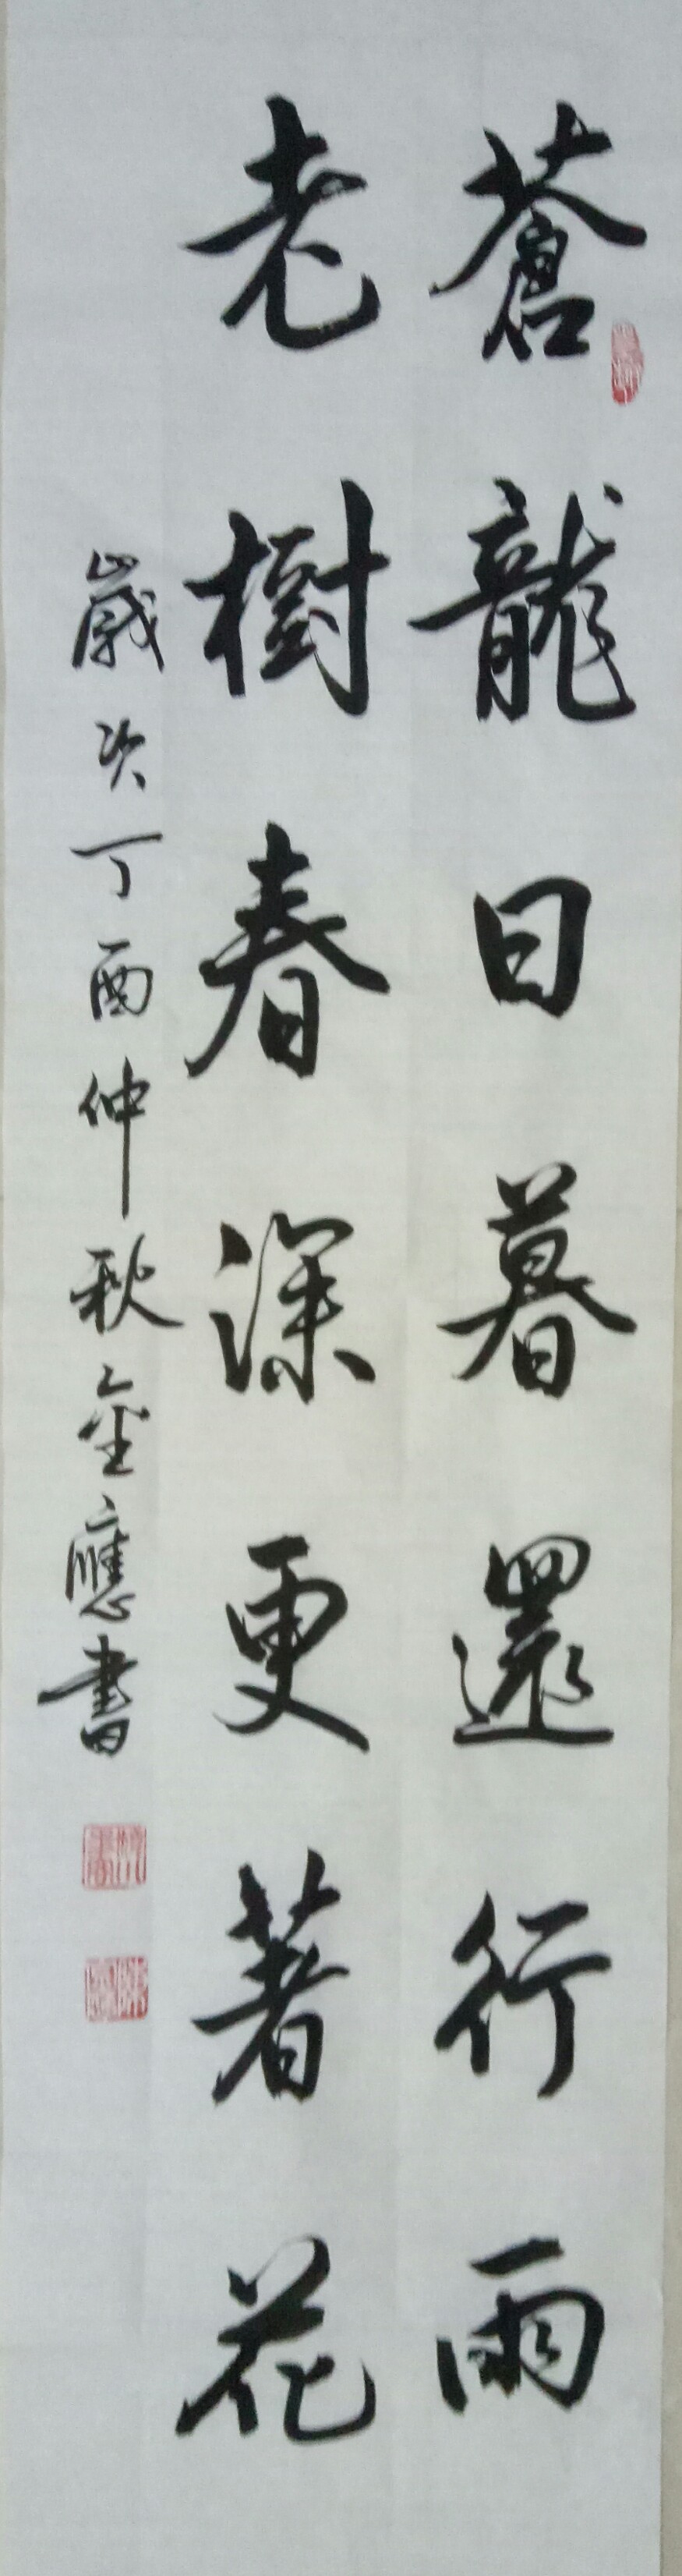 蒼龍日暮還行雨
老樹春深更著花
歲次丁酉仲秋金應書